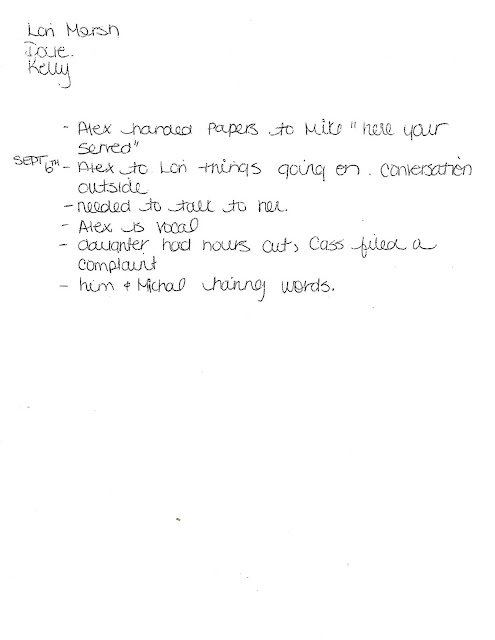 Lori Marsh
Dave.
Kelly
- Alex handed papers to Mike "here your
served"
SEPT 6TH - Alex to Lori things going on. Conversation
outside
- needed to talk to her.
- Alex is vocal
- daughter had hours cut, Cass filed a
complaint
- him & Michal having words.